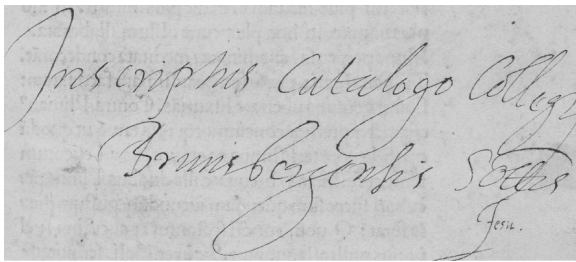 Inscriptus Catalogo Collegij
Brunsbergensis Soctis
Jesu.